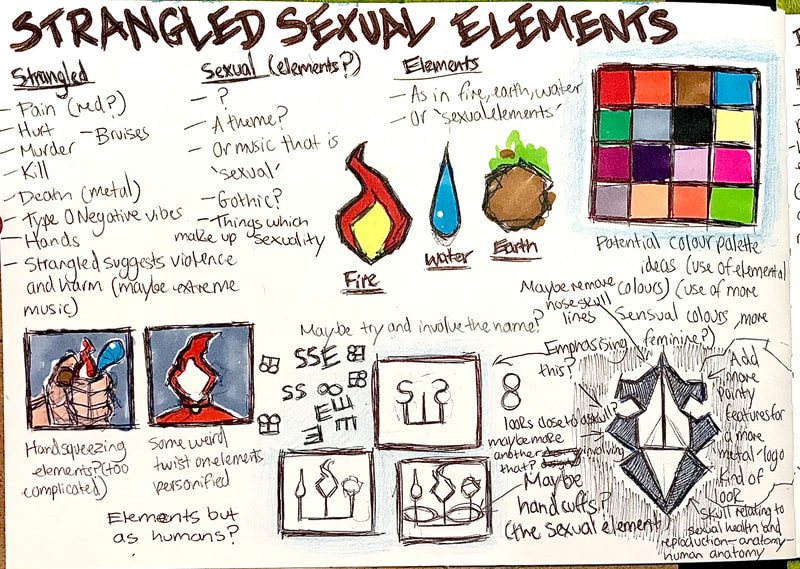 STRANGLED SEXUAL ELEMENTS
Strangled
- Pain (red?)
- Hurt - Bruises
- Murder
- Kill
- Death (metal)
- Type O Negative vibes
- Hands
- Strangled suggests violence
and harm (maybe extreme
music)
Sexual (elements?)
- ?
- A theme?
- Or music that is
'sexual'
- Gothic?
- Things which
make up sexuality
Elements
- As in fire, earth, water
- Or 'sexual elements'
Fire
Water
Earth
Potential colour palette
ideas (use of elemental
colours) (use of more
sensual colours, more
feminine?)
Hand squeezing
elements? (too
complicated)
Some weird
twist on elements
personified
Elements but
as humans?
Maybe try and involve the name?
SSE
SS
EE
SIS
Maybe
handcuffs?
(the sexual element)
Maybe remove
nose skull
lines
Emphasising
this?
looks close to a skull?
maybe more
another involving
that?
Add
more
pointy
features for
a more
metal-logo
kind of
look
skull relating to
sexual health and
reproduction-anatomy-
human anatomy